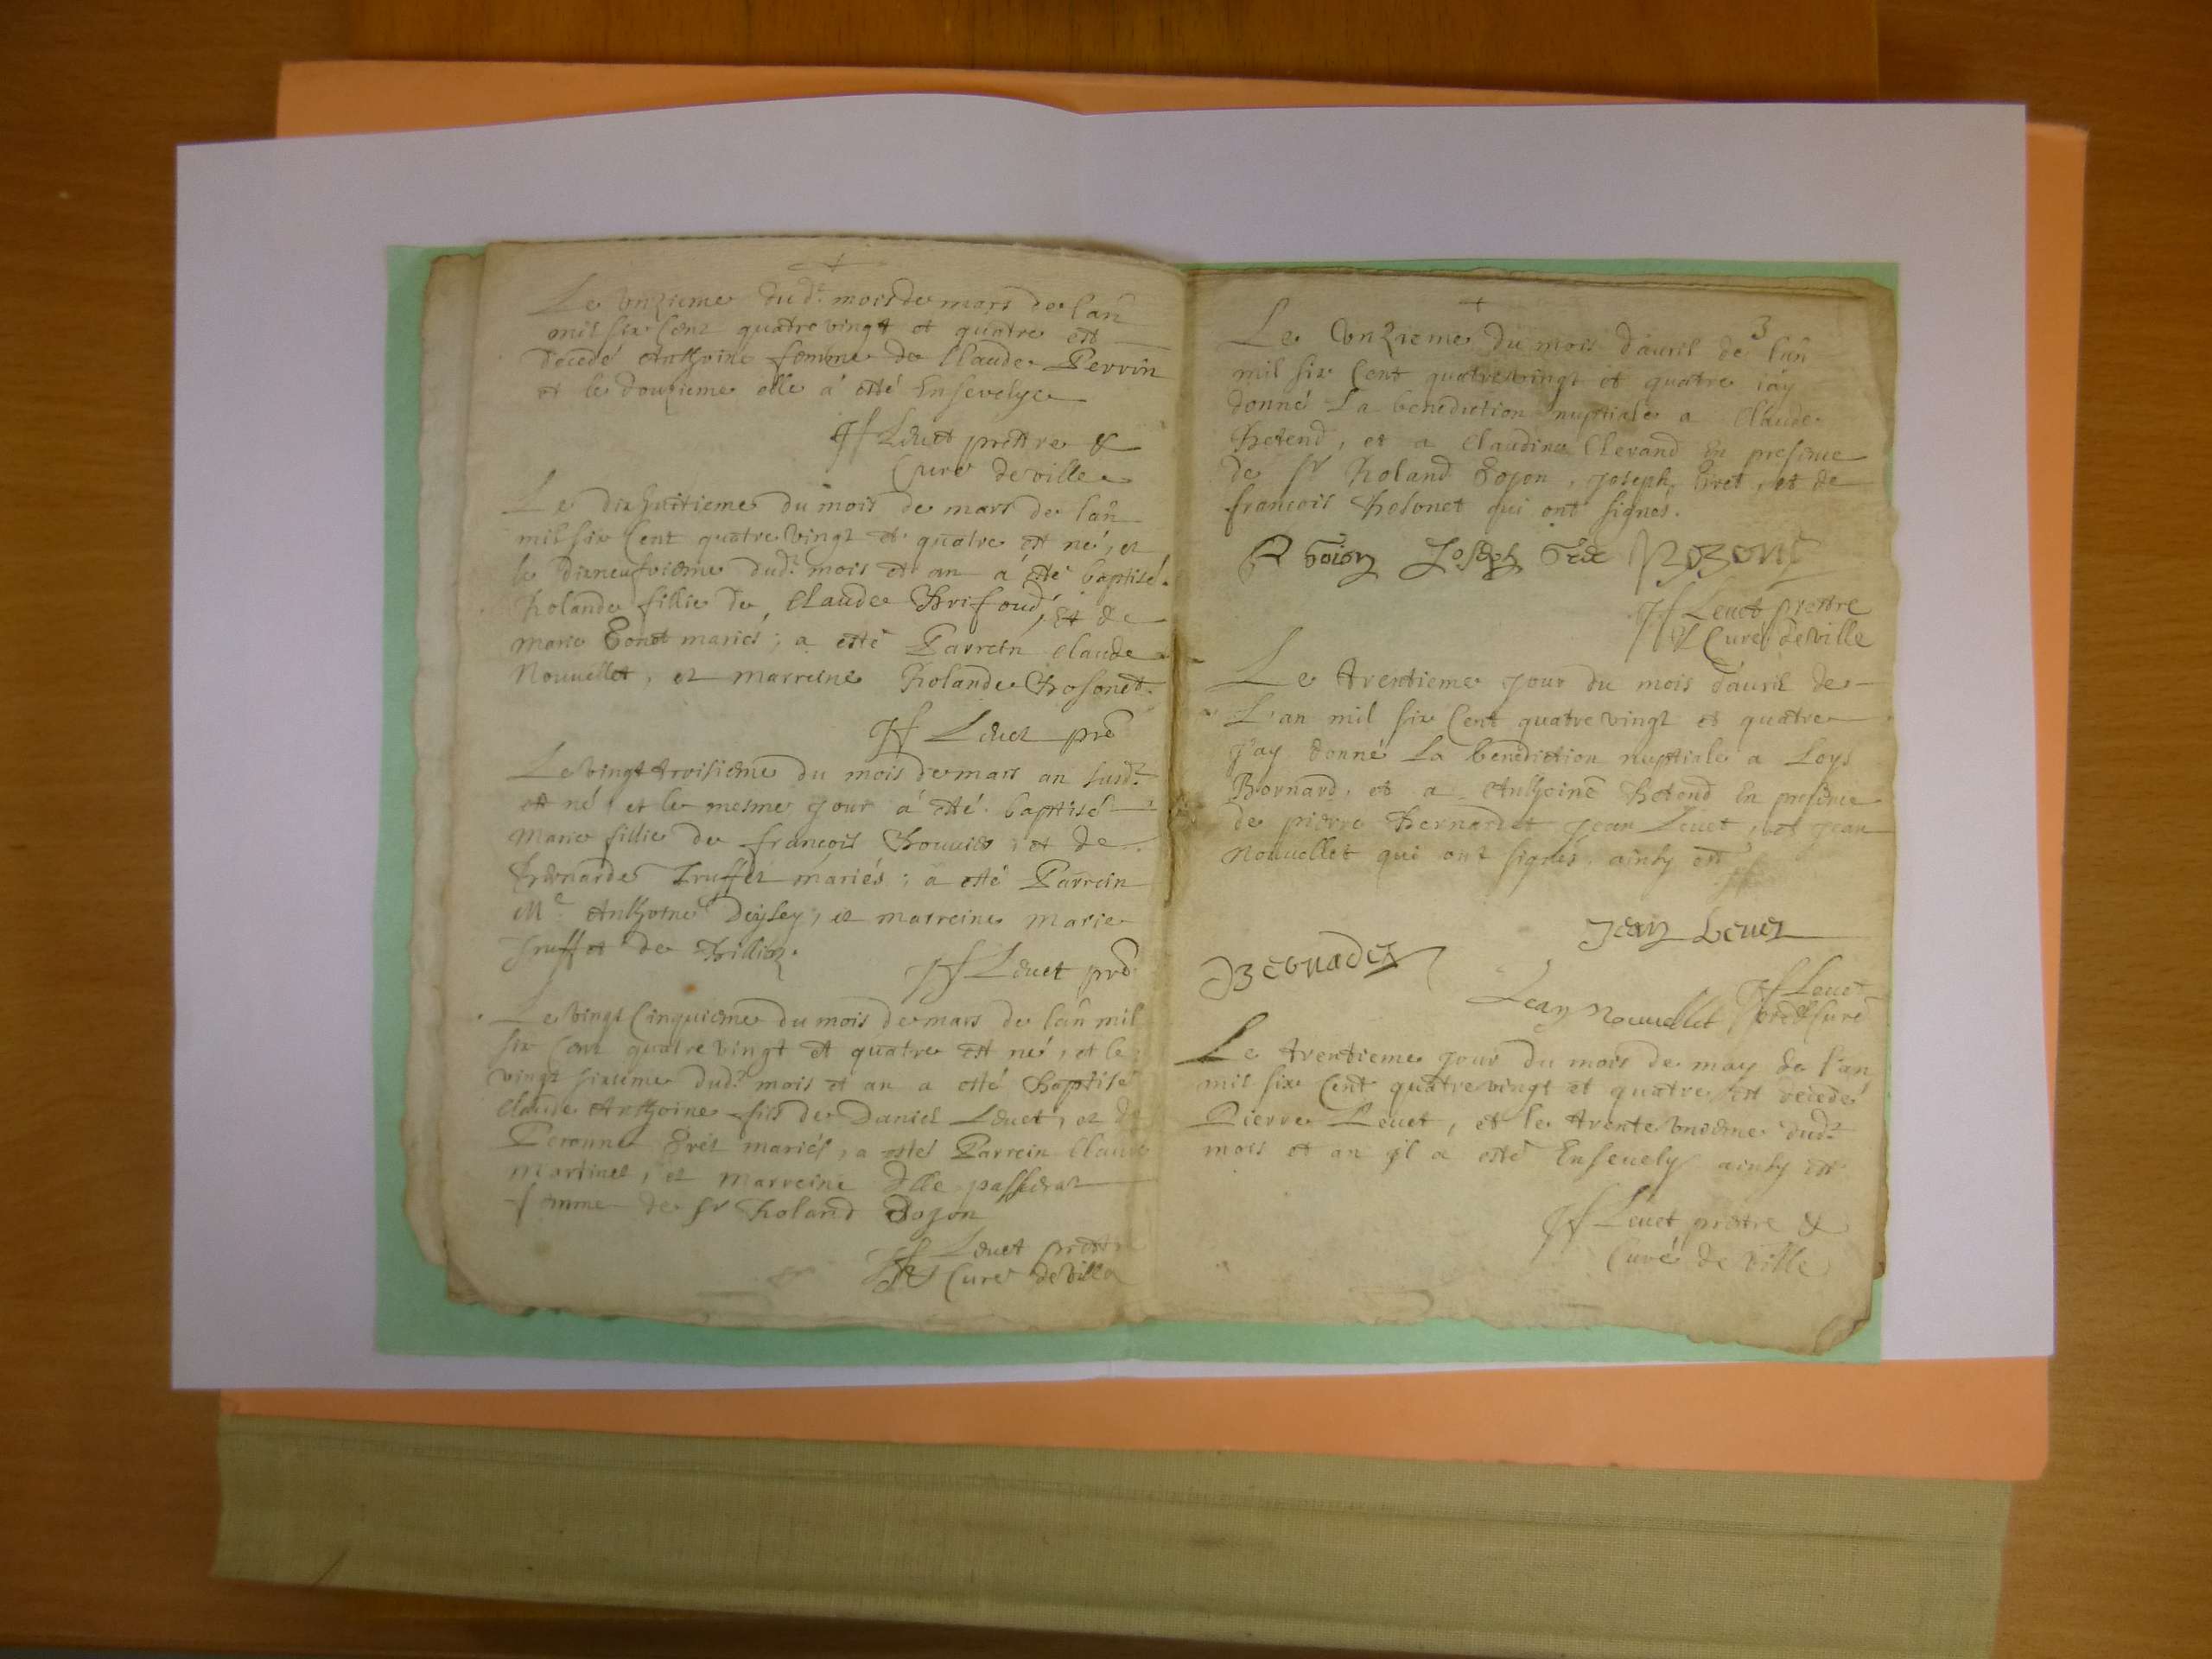 Le vnzieme dud.t mois de mars de lan
mil six cent quatre vingt et quatre est
decedé Anthoine femme de Claude Perrin
et le douzieme elle a esté Ensevelye
Jf Levet prestre &
Curé de ville
Le dixhuitieme du mois de mars de lan
mil six Cent quatre vingt et quatre est né, et
le dixneufvieme dud.t mois et an a esté baptisé
Rolande fillie de Claude et de
marie mariés ; a esté Parrein Claude
Nouuellet, et marreine Rolande Rosonet.
Jf Levet pre
Le vingt troisieme du mois de mars an susd.t
est né, et le mesme jour a esté baptisé
Marie fillie de francois et de
Bernarde Truffet mariés ; a esté Parrein
M.e Anthoine et marreine marie
Truffet de
Jf Levet pre
Le vingt Cinquieme du mois de mars de lan mil
six Cent quatre vingt et quatre est né, et le
vingt sixieme dud.t mois et an a esté Baptisé
Claude Anthoine fils de Daniel Levet, et de
Peronne mariés, a esté Parrein Claude
Martinet, et marreine dlle passerat
femme de sr Roland
Jf Levet prestre
& Curé de ville
3
Le vnzieme du mois d'auril de lan
mil six Cent quatre vingt et quatre iay
donné La benediction nuptiale a Claude
et a Claudine Clerand En presence
de sr Roland joseph et de
francois Rosonet qui ont signés.
Joseph
Jf Levet prestre
& Curé de ville
Le trentieme jour du mois d'auril de
L'an mil six Cent quatre vingt et quatre
j'ay donné La benediction nuptiale a Loys
Bernard, et a Anthoine En presence
de pierre Bernardet jean Levet, et jean
Nouuellet qui ont signés ainsy est
Jf
jean Levet
Bernadet
Jean Nouuellet
Jf Levet
pre & Curé
Le trentieme jour du mois de may de l'an
mil six Cent quatre vingt et quatre est decedé
Pierre Levet, et le trente vnieme dud.t
mois et an il a esté Enseuely ainsy est
Jf Levet prestre &
Curé de ville